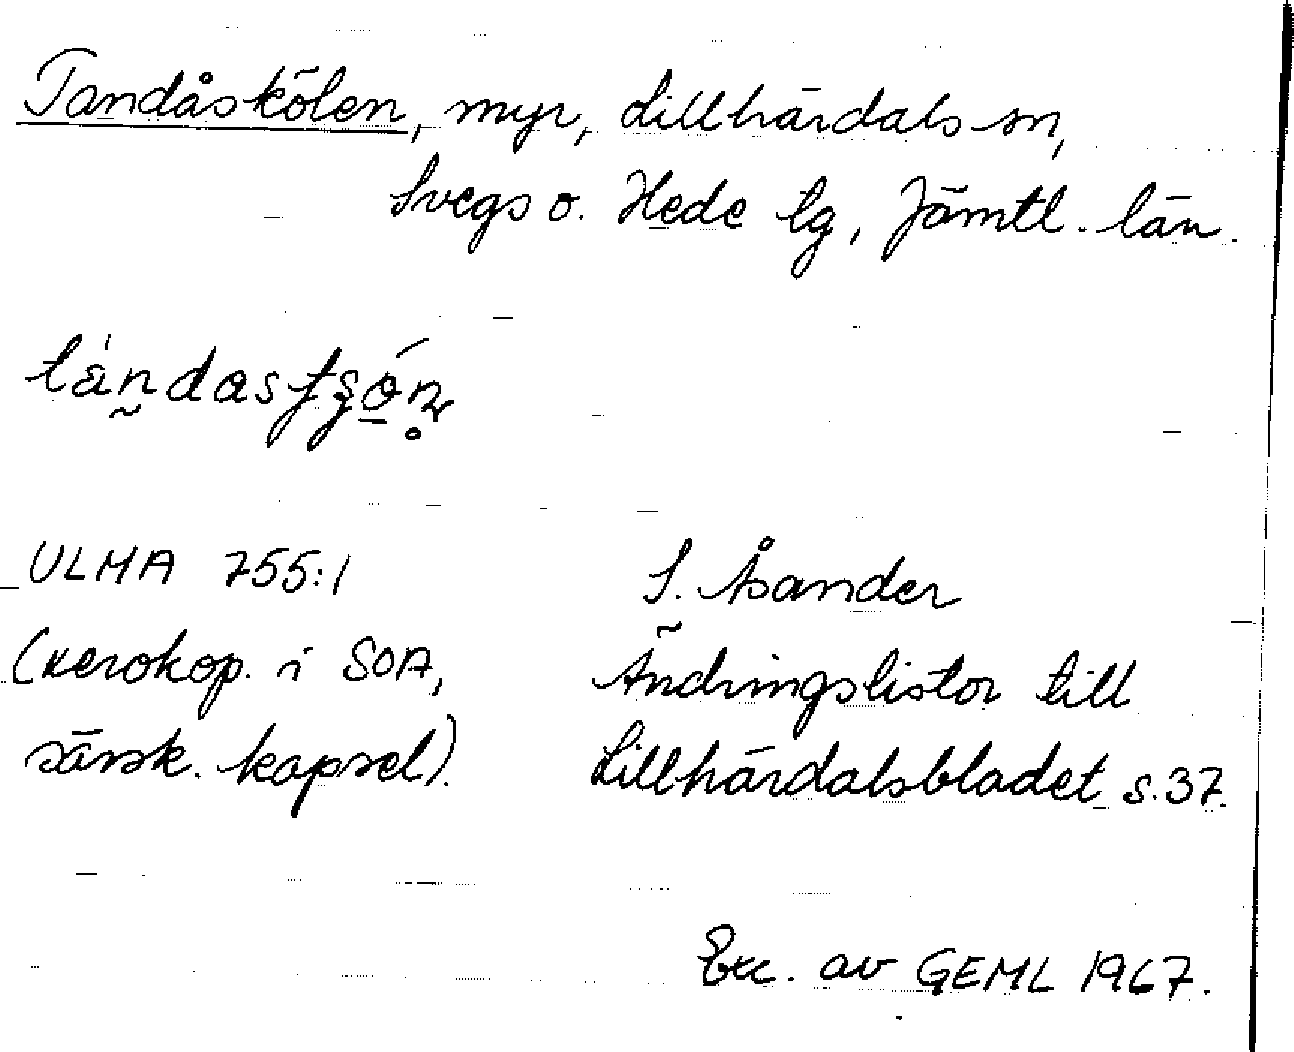 Tandåskölen, myr, Lillhärdals sn,
Svegs o. Hede tg, Jämtl. län.
ULMA 755:1
S. Åsander
(xerokop. i SOA,
Ändringslistor till
särsk. kapsel).
Lillhärdalsbladet s.37.
Exc. av GEML 1967.